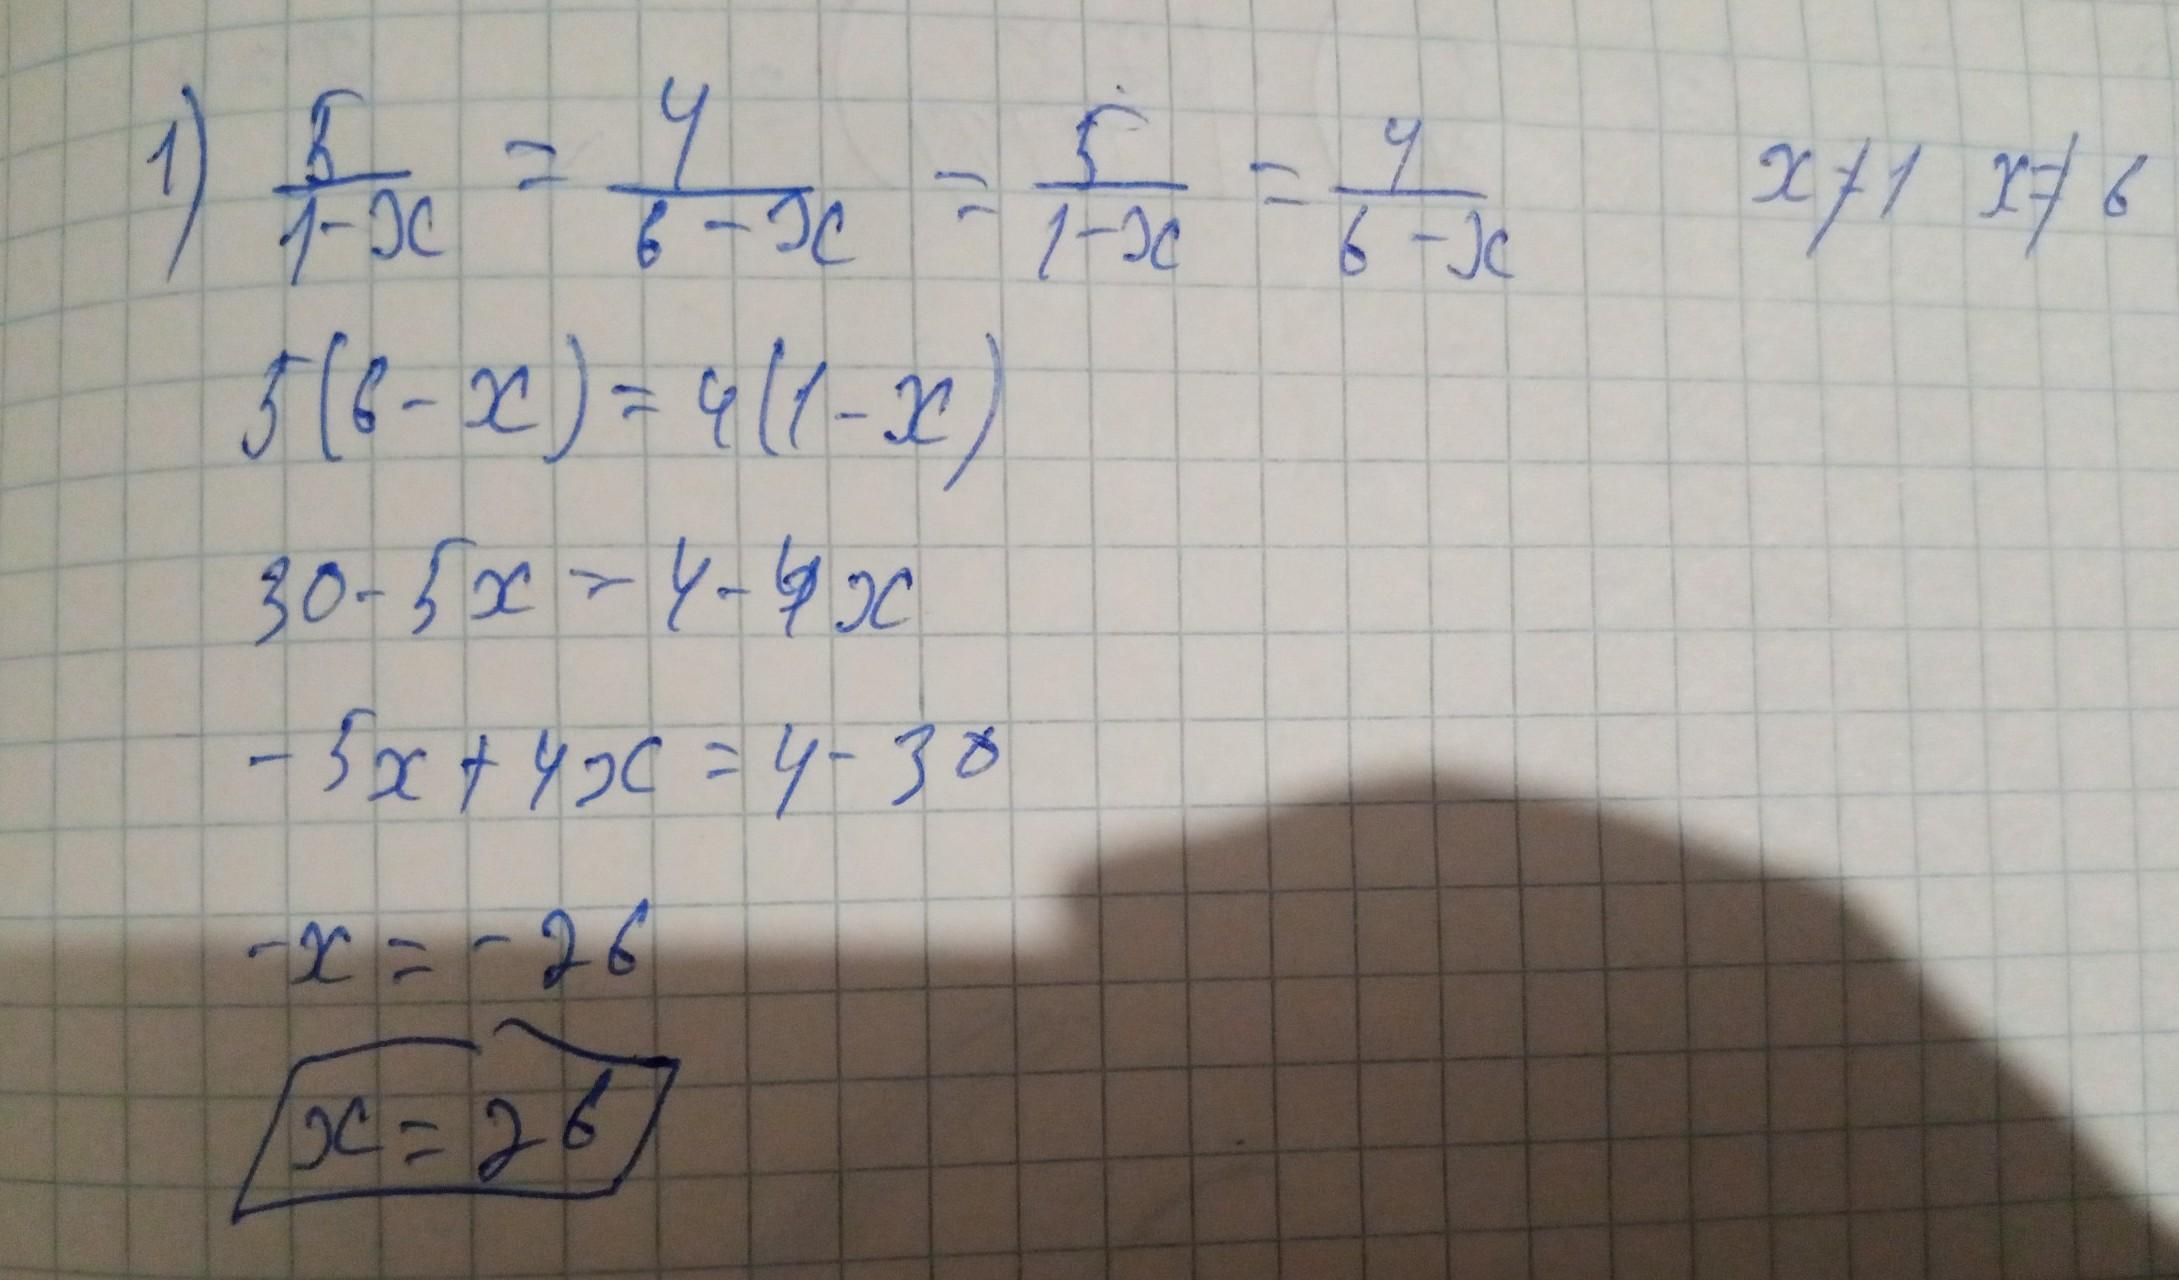 1) 5/(1-x) = 4/(6-x) = 5/(1-x) = 4/(6-x) x≠1 x≠6
5(6-x)=4(1-x)
30-5x=4-4x
-5x+4x=4-30
-x=-26
x=26